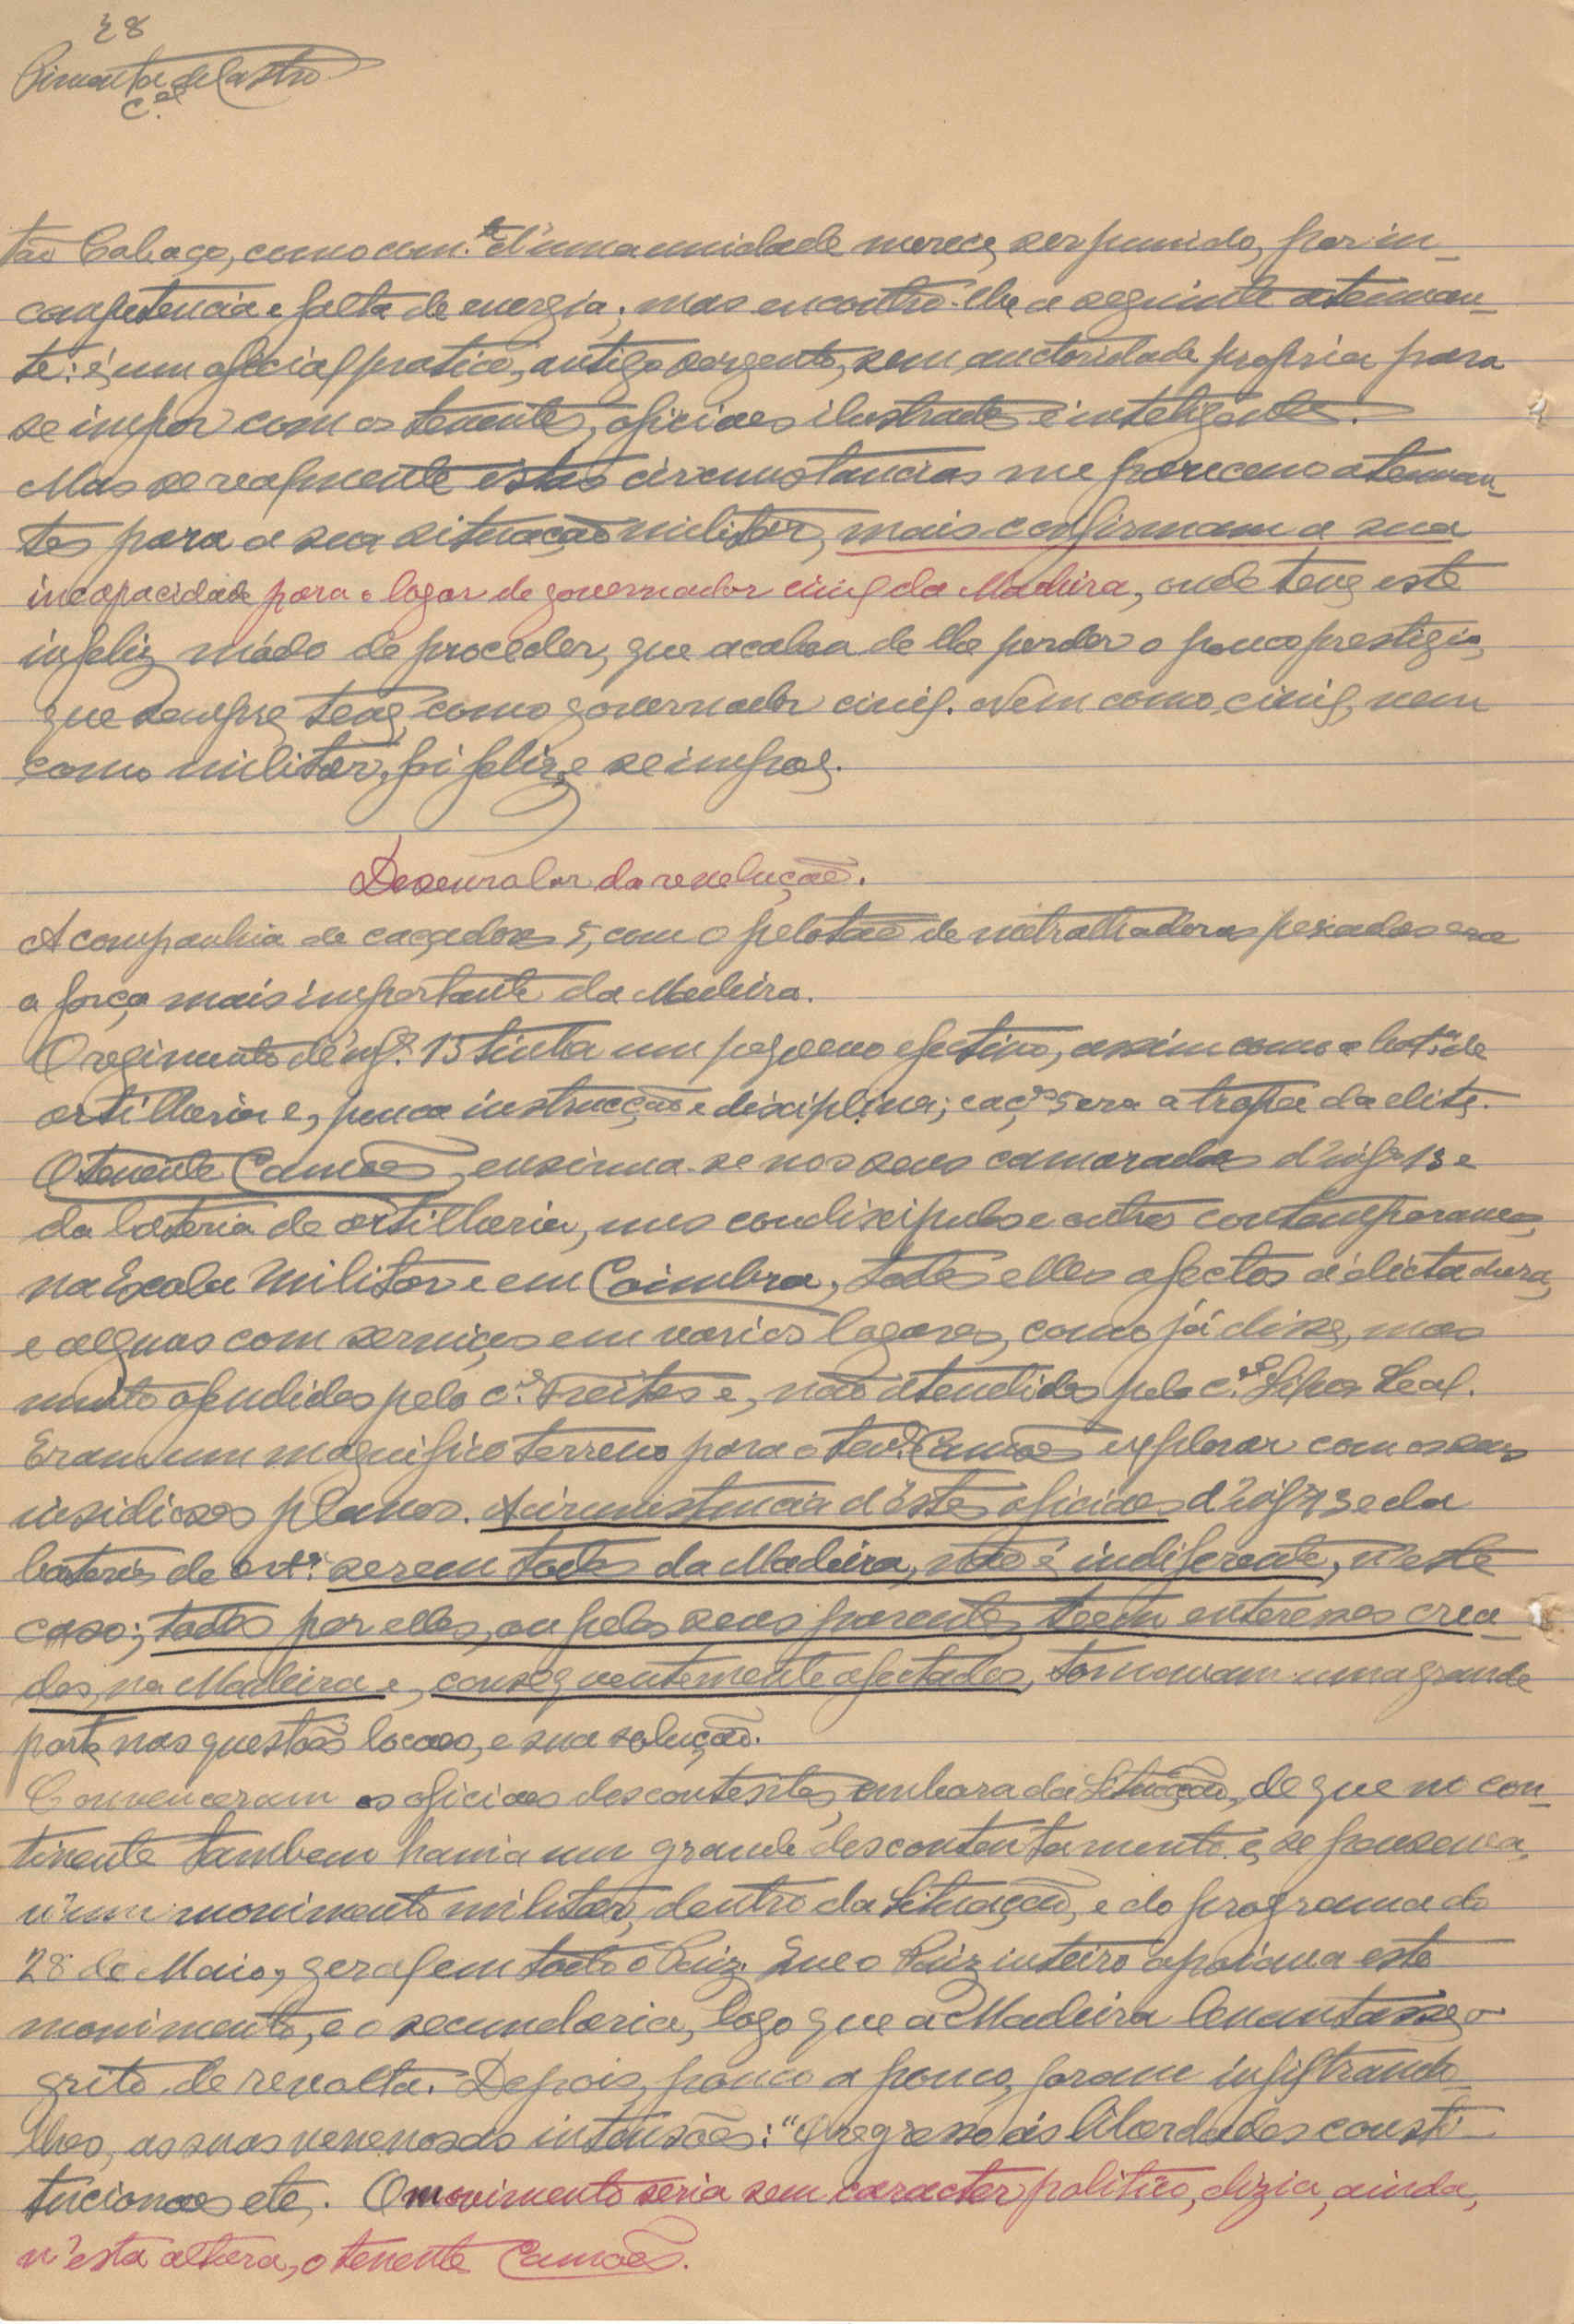 28
Pimenta de Castro
C.el
tão Cabaço, como com.te d'uma unidade merece, ser punido, por in-
competencia e falta de energia; mas encontro-lhe a seguinte atenuan-
te: é um oficial pratico, antigo sargento, sem auctoridade propria para
se impôr com os tenentes, oficiaes ilustrados e inteligentes.
Mas se realmente éstas circumstancias me parecem atenuan-
tes para a sua situação militar, mais confirmam a sua
incapacidade para o logar de governador civil da Madeira, onde teve este
infeliz módo de proceder, que acaba de lhe perder o pouco prestigio,
que sempre teve, como governador civil. Nem como civil, nem
como militar, foi feliz, e se impoz.
Desenrolar da revolução.
A companhia de caçadores 5, com o pelotão de metralhadoras pesadas era
a força mais importante da Madeira.
O regimento d'inf.ª 13 tinha um pequeno efectivo, assim como a bat.ia de
artilharia e, pouca instrucção e disciplina; caç.es 5 era a tropa da elite.
O tenente Camões, ensinua-se nos seus camaradas d'inf.ª 13 e
da bateria de artilharia, uns condiscipulos e outros contemporaneos,
na Escola Militar e em Coimbra, todos elles afectos á dictadura,
e alguns com serviços em varios logares, como já disse, mas
muito ofendidos pelo c.el Freitas e, não atendidos pelo c.el Silva Leal.
Eram um magnifico terreno para o ten.te Camões explorar com os seus
insidiosos planos. A circumstancia d'éstes oficiaes d'inf.ª 13 e da
bateria de art.ª serem todos da Madeira, não é indiferente, n'este
caso; todos por elles, ou pelos seus parentes, teem enteresses crea-
dos, na Madeira e, consequentemente afectados, tomavam uma grande
parte nas questões locaes, e sua solução.
Convenceram os oficiaes descontentes, embora da Situação, de que no con-
tinente tambem havia um grande descontentamento e, se pensava,
n'um movimento militar, dentro da Situação, e do programa do
28 de Maio, geral em todo o Paiz. Que o Paiz inteiro apoiava este
movimento, e o secundaria, logo que a Madeira levantasse o
grito de revolta. Depois, pouco a pouco, foram infiltrando-
lhes, as suas venenosas intensões: "O regresso ás liberdades consti-
tucionaes etc. O movimento seria sem caracter politico, dizia, ainda,
n'esta altura, o tenente Camões.